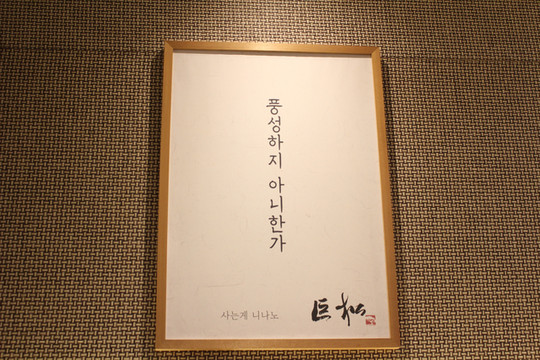 풍성하지 아니한가
사는게 니나노
巨松